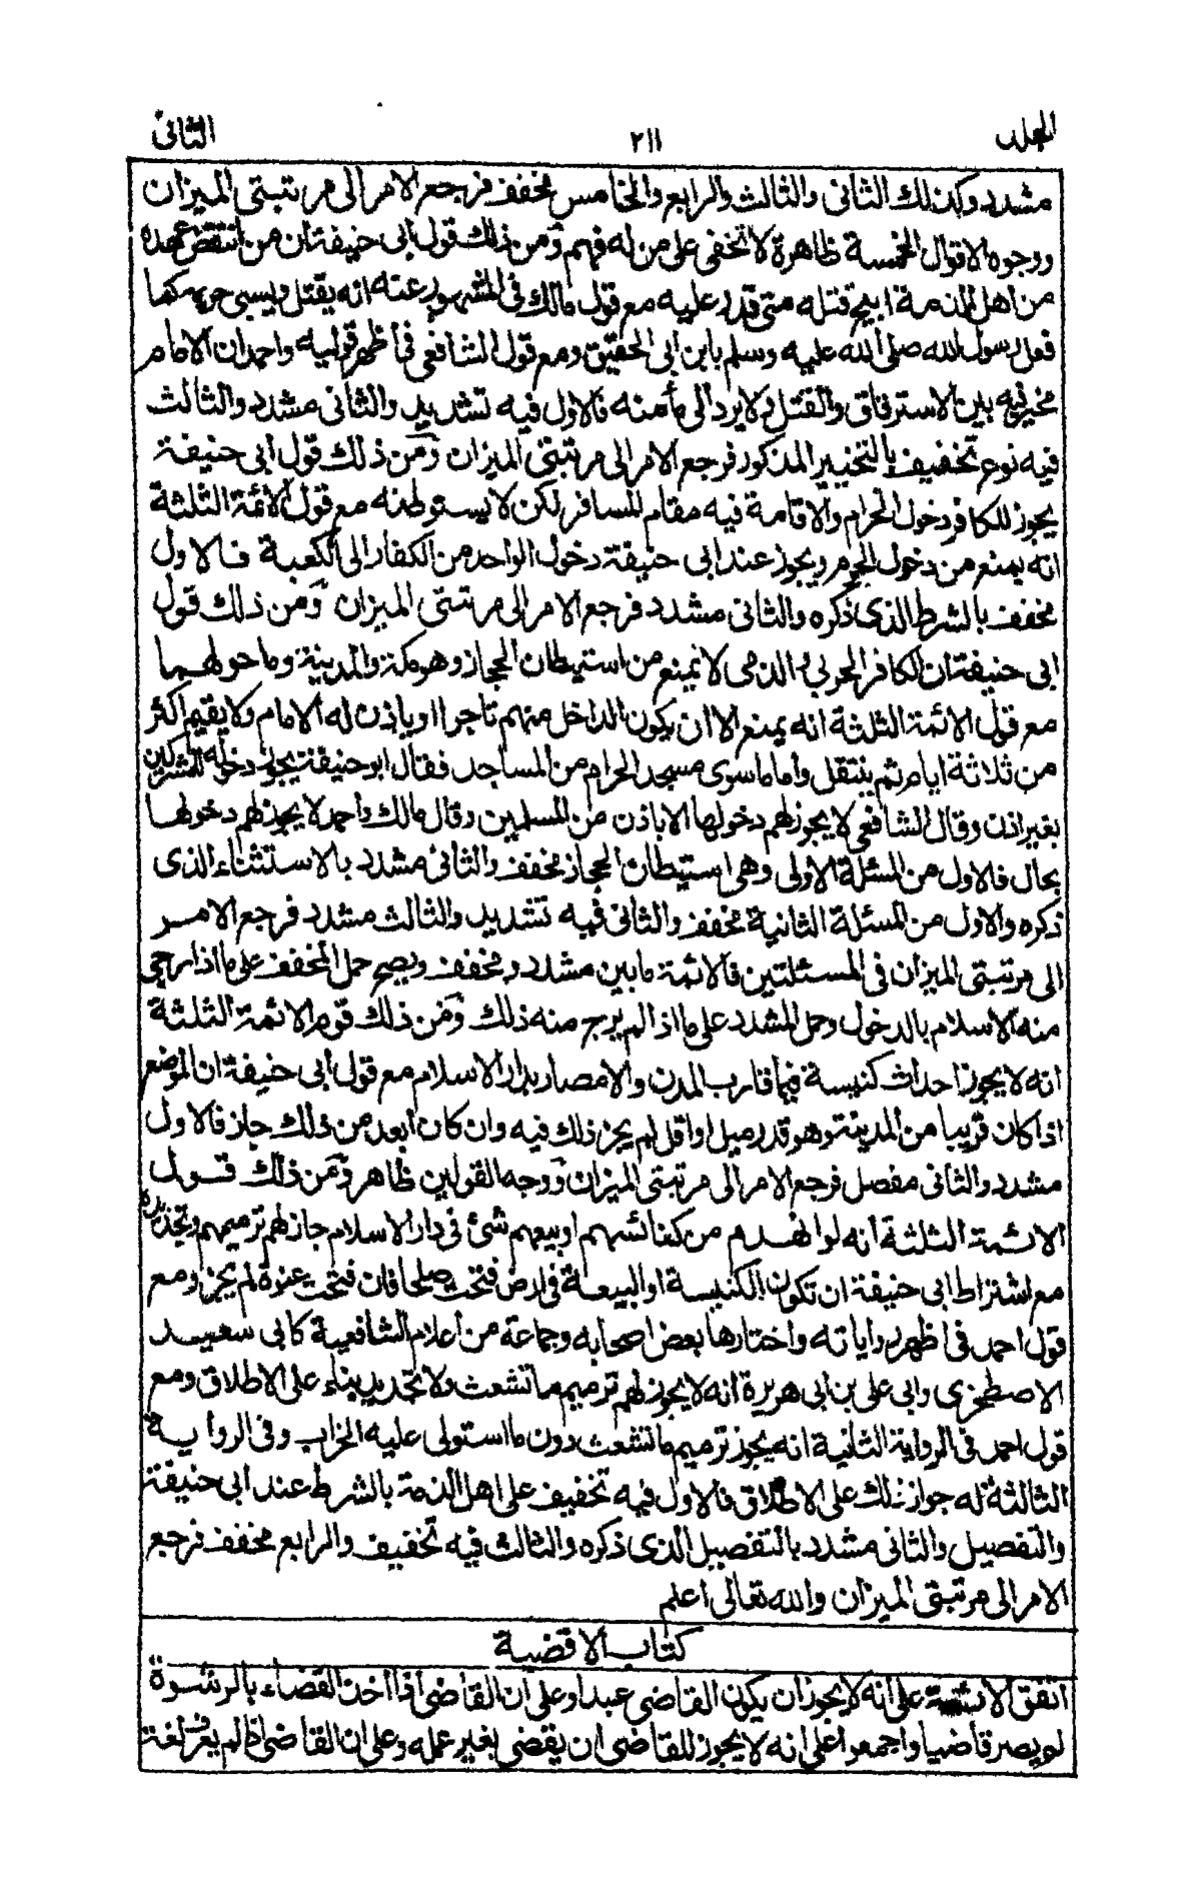 المجلد
٢١١
الثانى
مشدد وكذلك الثانى والثالث والرابع والخامس مخفف فرجع الامر الى مرتبتى الميزان
ووجوه الاقوال الخمسة ظاهرة لا تخفى على من له فهم ومن ذلك قول ابى حنيفة ان من انتقض عهده
من اهل الذمة ابيح قتله متى قدر عليه مع قول مالك فى المشهور عنه انه يقتل ويسبى حريمه كما
فعل رسول الله صلى الله عليه وسلم بابن ابى الحقيق ومع قول الشافعى فى اظهر قوليه واحمد ان الامام
مخير فيه بين الاسترقاق والقتل ولا يرد الى مأمنه فالاول فيه تشديد والثانى مشدد والثالث
فيه نوع تخفيف بالتخيير المذكور فرجع الامر الى مرتبتى الميزان ومن ذلك قول ابى حنيفة
يجوز للكافر دخول الحرم والاقامة فيه مقام المسافر لكن لا يستوطنه مع قول الائمة الثلثة
انه يمنع من دخول الحرم ويجوز عند ابى حنيفة دخول الواحد من الكفار الى الكعبة فالاول
مخفف بالشرط الذى ذكره والثانى مشدد فرجع الامر الى مرتبتى الميزان ومن ذلك قول
ابى حنيفة ان الكافر الحربى والذمى لا يمنع من استيطان الحجاز وهو مكة والمدينة وما حولهما
مع قول الائمة الثلثة انه يمنع الا ان يكون الداخل منهم تاجرا او ياذن له الامام ولا يقيم اكثر
من ثلاثة ايام ثم ينتقل واما ما سوى مسجد الحرام من المساجد فقال ابو حنيفة يجوز دخوله للمشركين
بغير اذن وقال الشافعى لا يجوز لهم دخولها الا باذن من المسلمين وقال مالك واحمد لا يجوز لهم دخولها
بحال فالاول من المسئلة الاولى وهى استيطان الحجاز مخفف والثانى مشدد بالاستثناء الذى
ذكره والاول من المسئلة الثانية مخفف والثانى فيه تشديد والثالث مشدد فرجع الامر
الى مرتبتى الميزان فى المسئلتين فالائمة ما بين مشدد ومخفف ويصح حمل المخفف على ما اذا رجى
منه الاسلام بالدخول وحمل المشدد على ما اذا لم يرج منه ذلك ومن ذلك قول الائمة الثلثة
انه لا يجوز احداث كنيسة فيما قارب المدن والامصار بدار الاسلام مع قول ابى حنيفة ان الموضع
اذا كان قريبا من المدينة وهو قدر ميل او اقل لم يجز ذلك فيه وان كان ابعد من ذلك جاز فالاول
مشدد والثانى مفصل فرجع الامر الى مرتبتى الميزان ووجه القولين ظاهر ومن ذلك قول
الائمة الثلثة انه لو انهدم من كنائسهم او بيعهم شئ فى دار الاسلام جاز لهم ترميمهم وتجديده
مع اشتراط ابى حنيفة ان تكون الكنيسة او البيعة فى ارض فتحت صلحا فان فتحت عنوة لم يجز ومع
قول احمد فى اظهر رواياته واختارها بعض اصحابه وجماعة من اعلام الشافعية كابى سعيد
الاصطخرى وابى على بن ابى هريرة انه لا يجوز لهم ترميم ما تشعث ولا تجديد بناء على الاطلاق ومع
قول احمد فى الرواية الثانية انه يجوز ترميم ما تشعث دون ما استولى عليه الخراب وفى الرواية
الثالثة له جواز ذلك على الاطلاق فالاول فيه تخفيف على اهل الذمة بالشرط عند ابى حنيفة
والتفصيل والثانى مشدد بالتفصيل الذى ذكره والثالث فيه تخفيف والرابع مخفف فرجع
الامر الى مرتبتى الميزان والله تعالى اعلم
كتاب الاقضية
اتفق الائمة على انه لا يجوز ان يكون القاضى عبدا وعلى ان القاضى اذا اخذ القضاء بالرشوة
لم يصر قاضيا واجمعوا على انه لا يجوز للقاضى ان يقضى بغير عمله وعلى ان القاضى اذا لم يعرف لغة